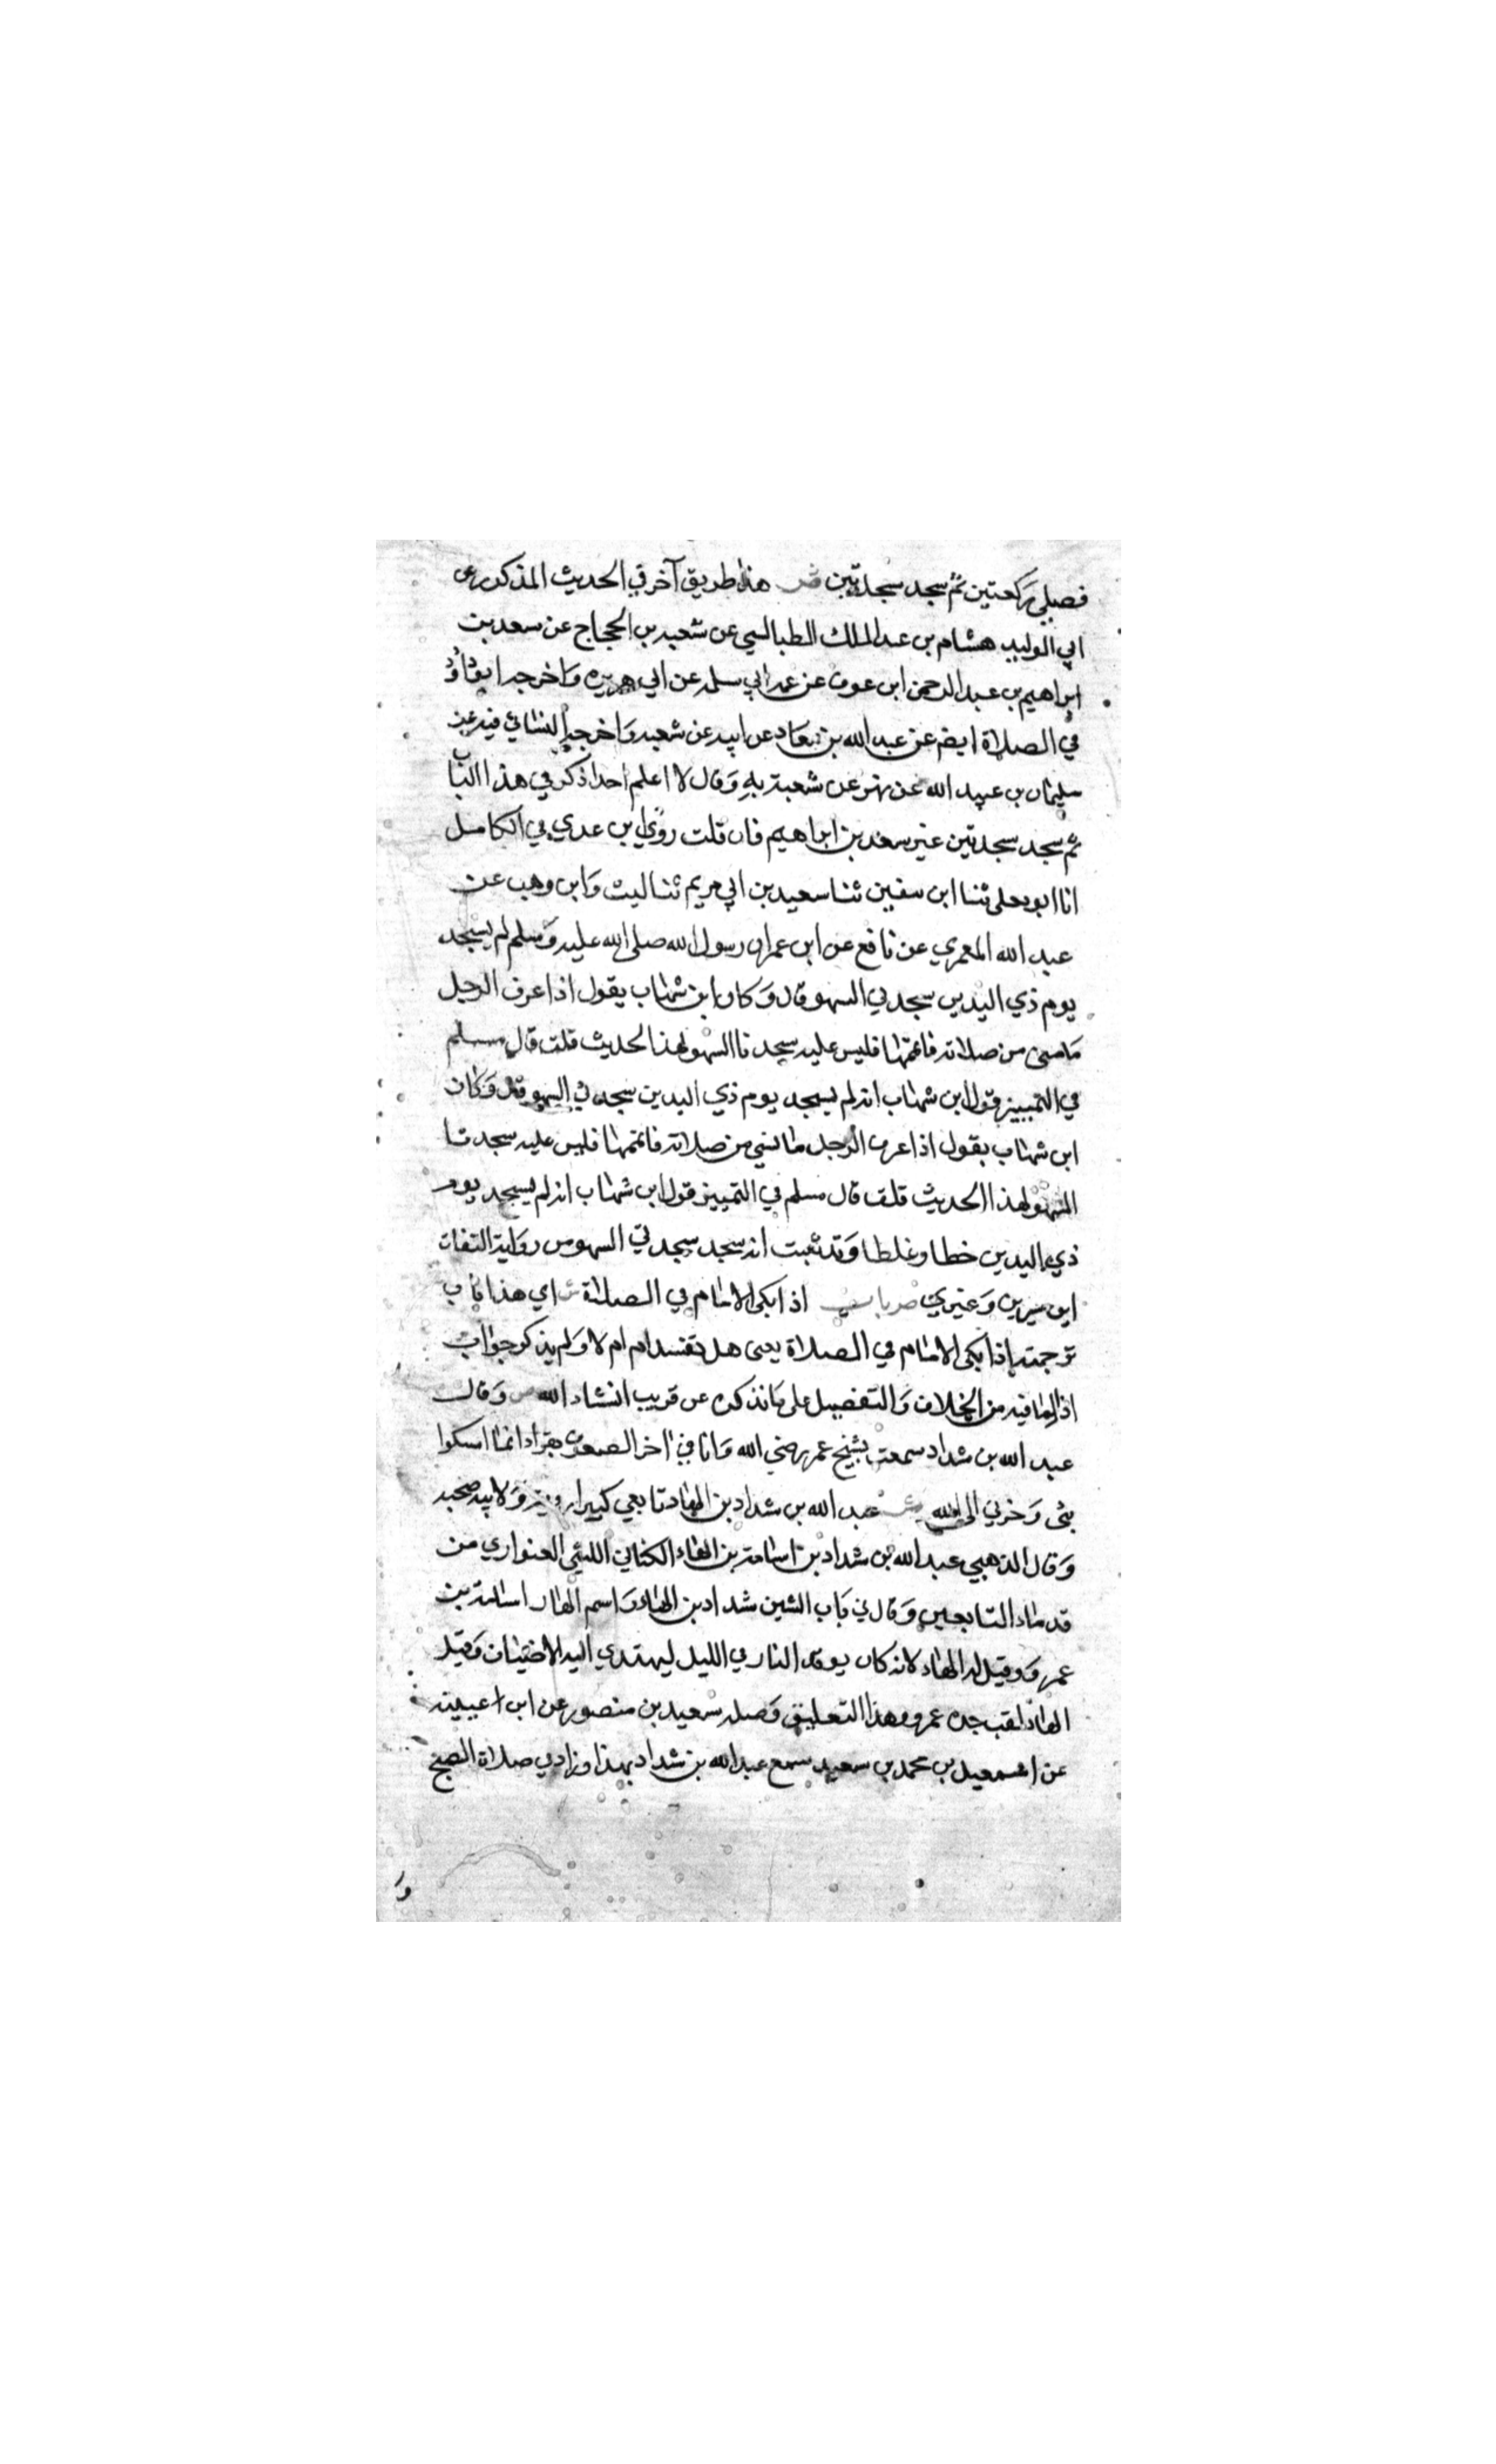 فصلي ركعتين ثم سجد سجدتين ش هذا طريق آخر في الحديث المذكور عن
ابي الوليد هشام بن عبد الملك الطيالسي عن شعبه بن الحجاج عن سعد بن
ابراهيم بن عبد الرحمن ابن عوف عن عمه ابي سلمه عن ابي هريره وَاخرجه ابوداوُد
في الصلاة ايضم عن عبد الله بن معاد عن ابيه عن شعبه وَاخرجه النسائي فيه عن
سليمان بن عبيد الله عن بهز عن شعبة به وَقال لا اعلم احدا ذكر في هذا الباب
ثم سجد سجدتين غير سعد بن ابراهيم فان قلت روي ابن عدي في الكامل
انا ابو يعلى ثنا ابن معين ثنا سعيد بن ابي مريم ثنا ليث وَابن وهب عن
عبد الله المعمري عن نافع عن ابن عمر ان رسول الله صلى الله عليه وَسلم لم يسجد
يوم ذي اليدين سجدتي السهو قال وَكان ابن شهاب يقول اذا عرف الرجل
مَا نسى من صلاته فاتمها فليس عليه سجدتا السهو لهذا الحديث قلت قال مسلم
في التمييز قول ابن شهاب انه لم يسجد يوم ذي اليدين سجدتي السهو قال وَكان
ابن شهاب يقول اذا عرف الرجل ما نسي من صلاته فاتمها فليس عليه سجدتا
السهو لهذا الحديث قلت قال مسلم في التمييز قول ابن شهاب انه لم يسجد يوم
ذي اليدين خطا وغلطا وَقد ثبت انه سجد سجدتي السهو من روَاية الثقات
ابن سيرين وَغيره ص باب اذا بكى الامام في الصلاة ش اي هذا باب
ترجمته اذا بكى الامام في الصلاة يعنى هل تفسد ام لا وَلم يذكر جواب
اذا لما فيه من الخلاف وَالتفصيل على مَا نذكره عن قريب انشاء الله ص وَقال
عبد الله بن شداد سمعت نشيج عمر رضي الله وَانا في اخر الصفوف يقرا انما اشكوا
بثى وَحزني الى الله ش عبد الله بن شداد بن الهاد تابعي كبير له روية وَلابيه صحبه
وَقال الذهبي عبد الله بن شداد بن اسامة بن الهاد الكناني الليثي العتواري من
قدماء التابعين وَقال في بَاب الشين شداد بن الهاد وَاسم الهاد اسامة بن
عمرو وَقيل له الهاد لانه كان يوقد النار في الليل ليهتدي اليه الاضياف وَقيل
الهاد لقب جده عمرو وهذا التعليق وَصله سعيد بن منصور عن ابن عيينه
عن اسمعيل بن محمد بن سعيد سمع عبد الله بن شداد بهذا وزاد في صلاة الصبح
وَ